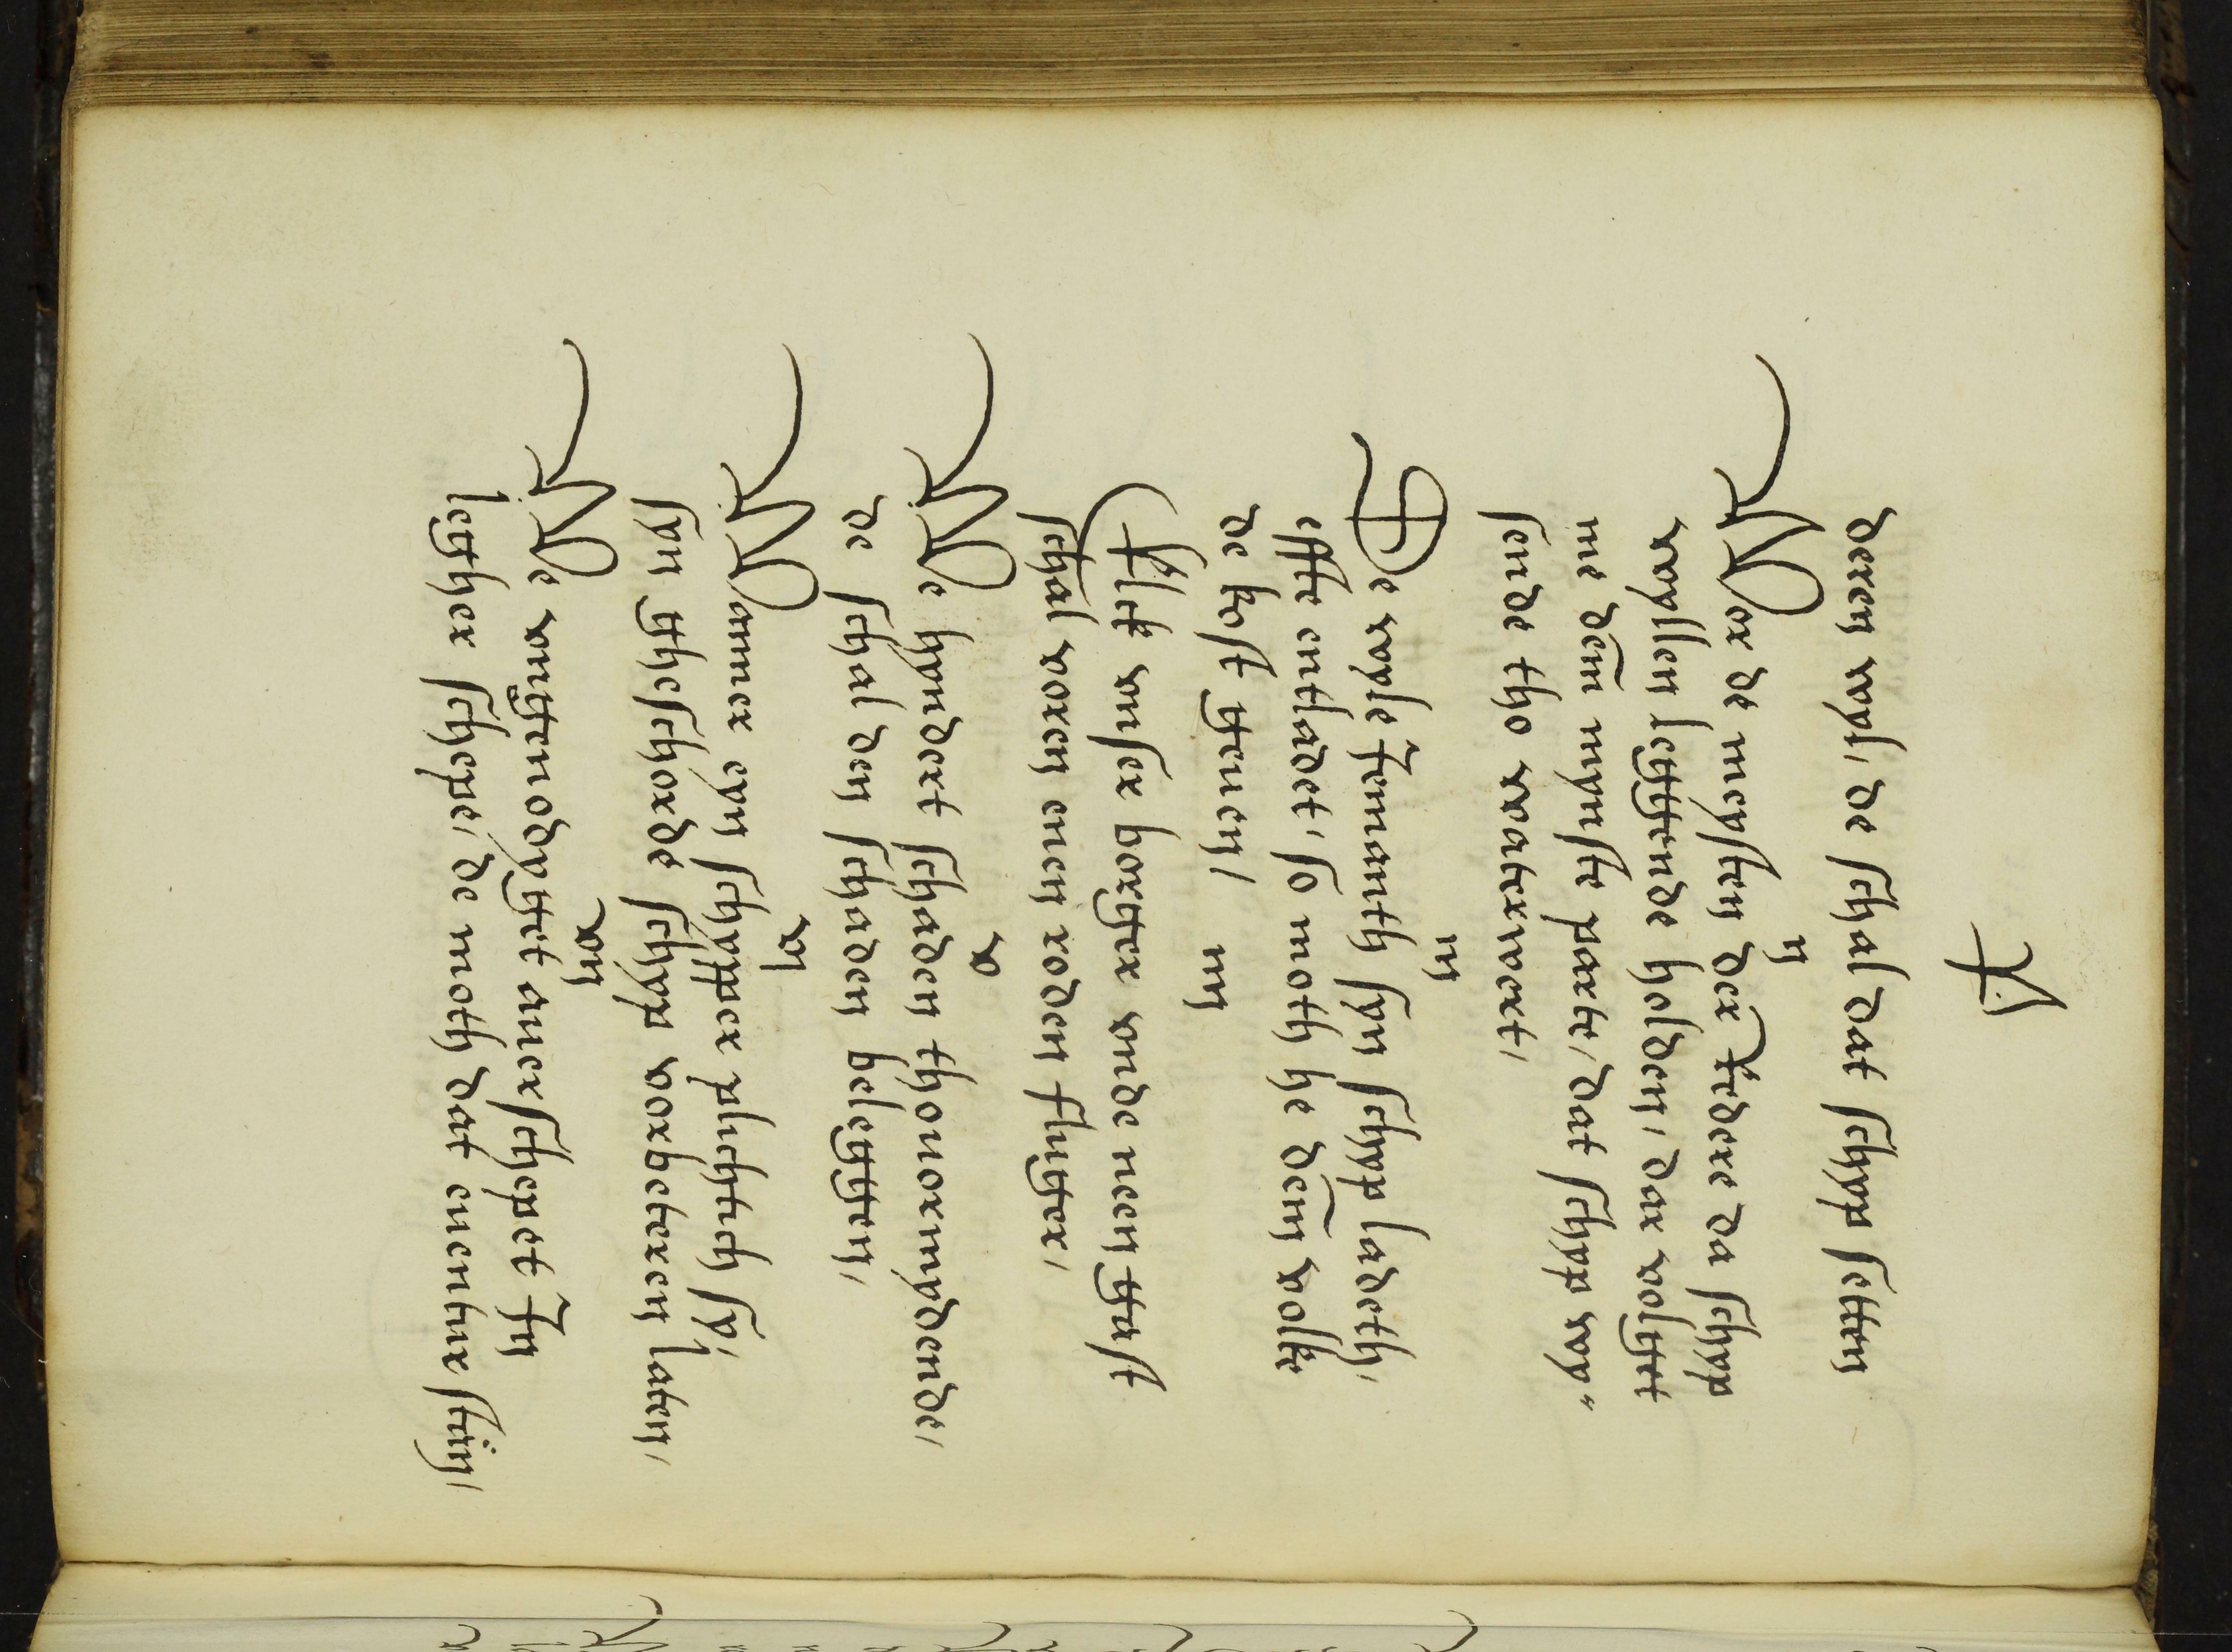 deren wyl, de schal dat schyp setten
ij
Wor de meysten der Redere da schyp
wyllen leggende holden, dar volghet
me dem mynste parte, dat schyp wy=
sende tho watervaert,
iij
De wyle Jemanth syn schyp ladeth,
effte entladet, so moth he dem volke
de kost gheuen,
iiij
Elck vnser borgher vnde neen ghast
schal voren enen roden fluger,
v
We hyndert schaden thouormydende,
de schal den schaden beleggen,
vi
Wanner eyn schypper plychtich sy,
syn schyp vorbeteren laten,
vij
We vnghenodyget aner schepet Jn
lechter schepe, de moth dat euentur stan,